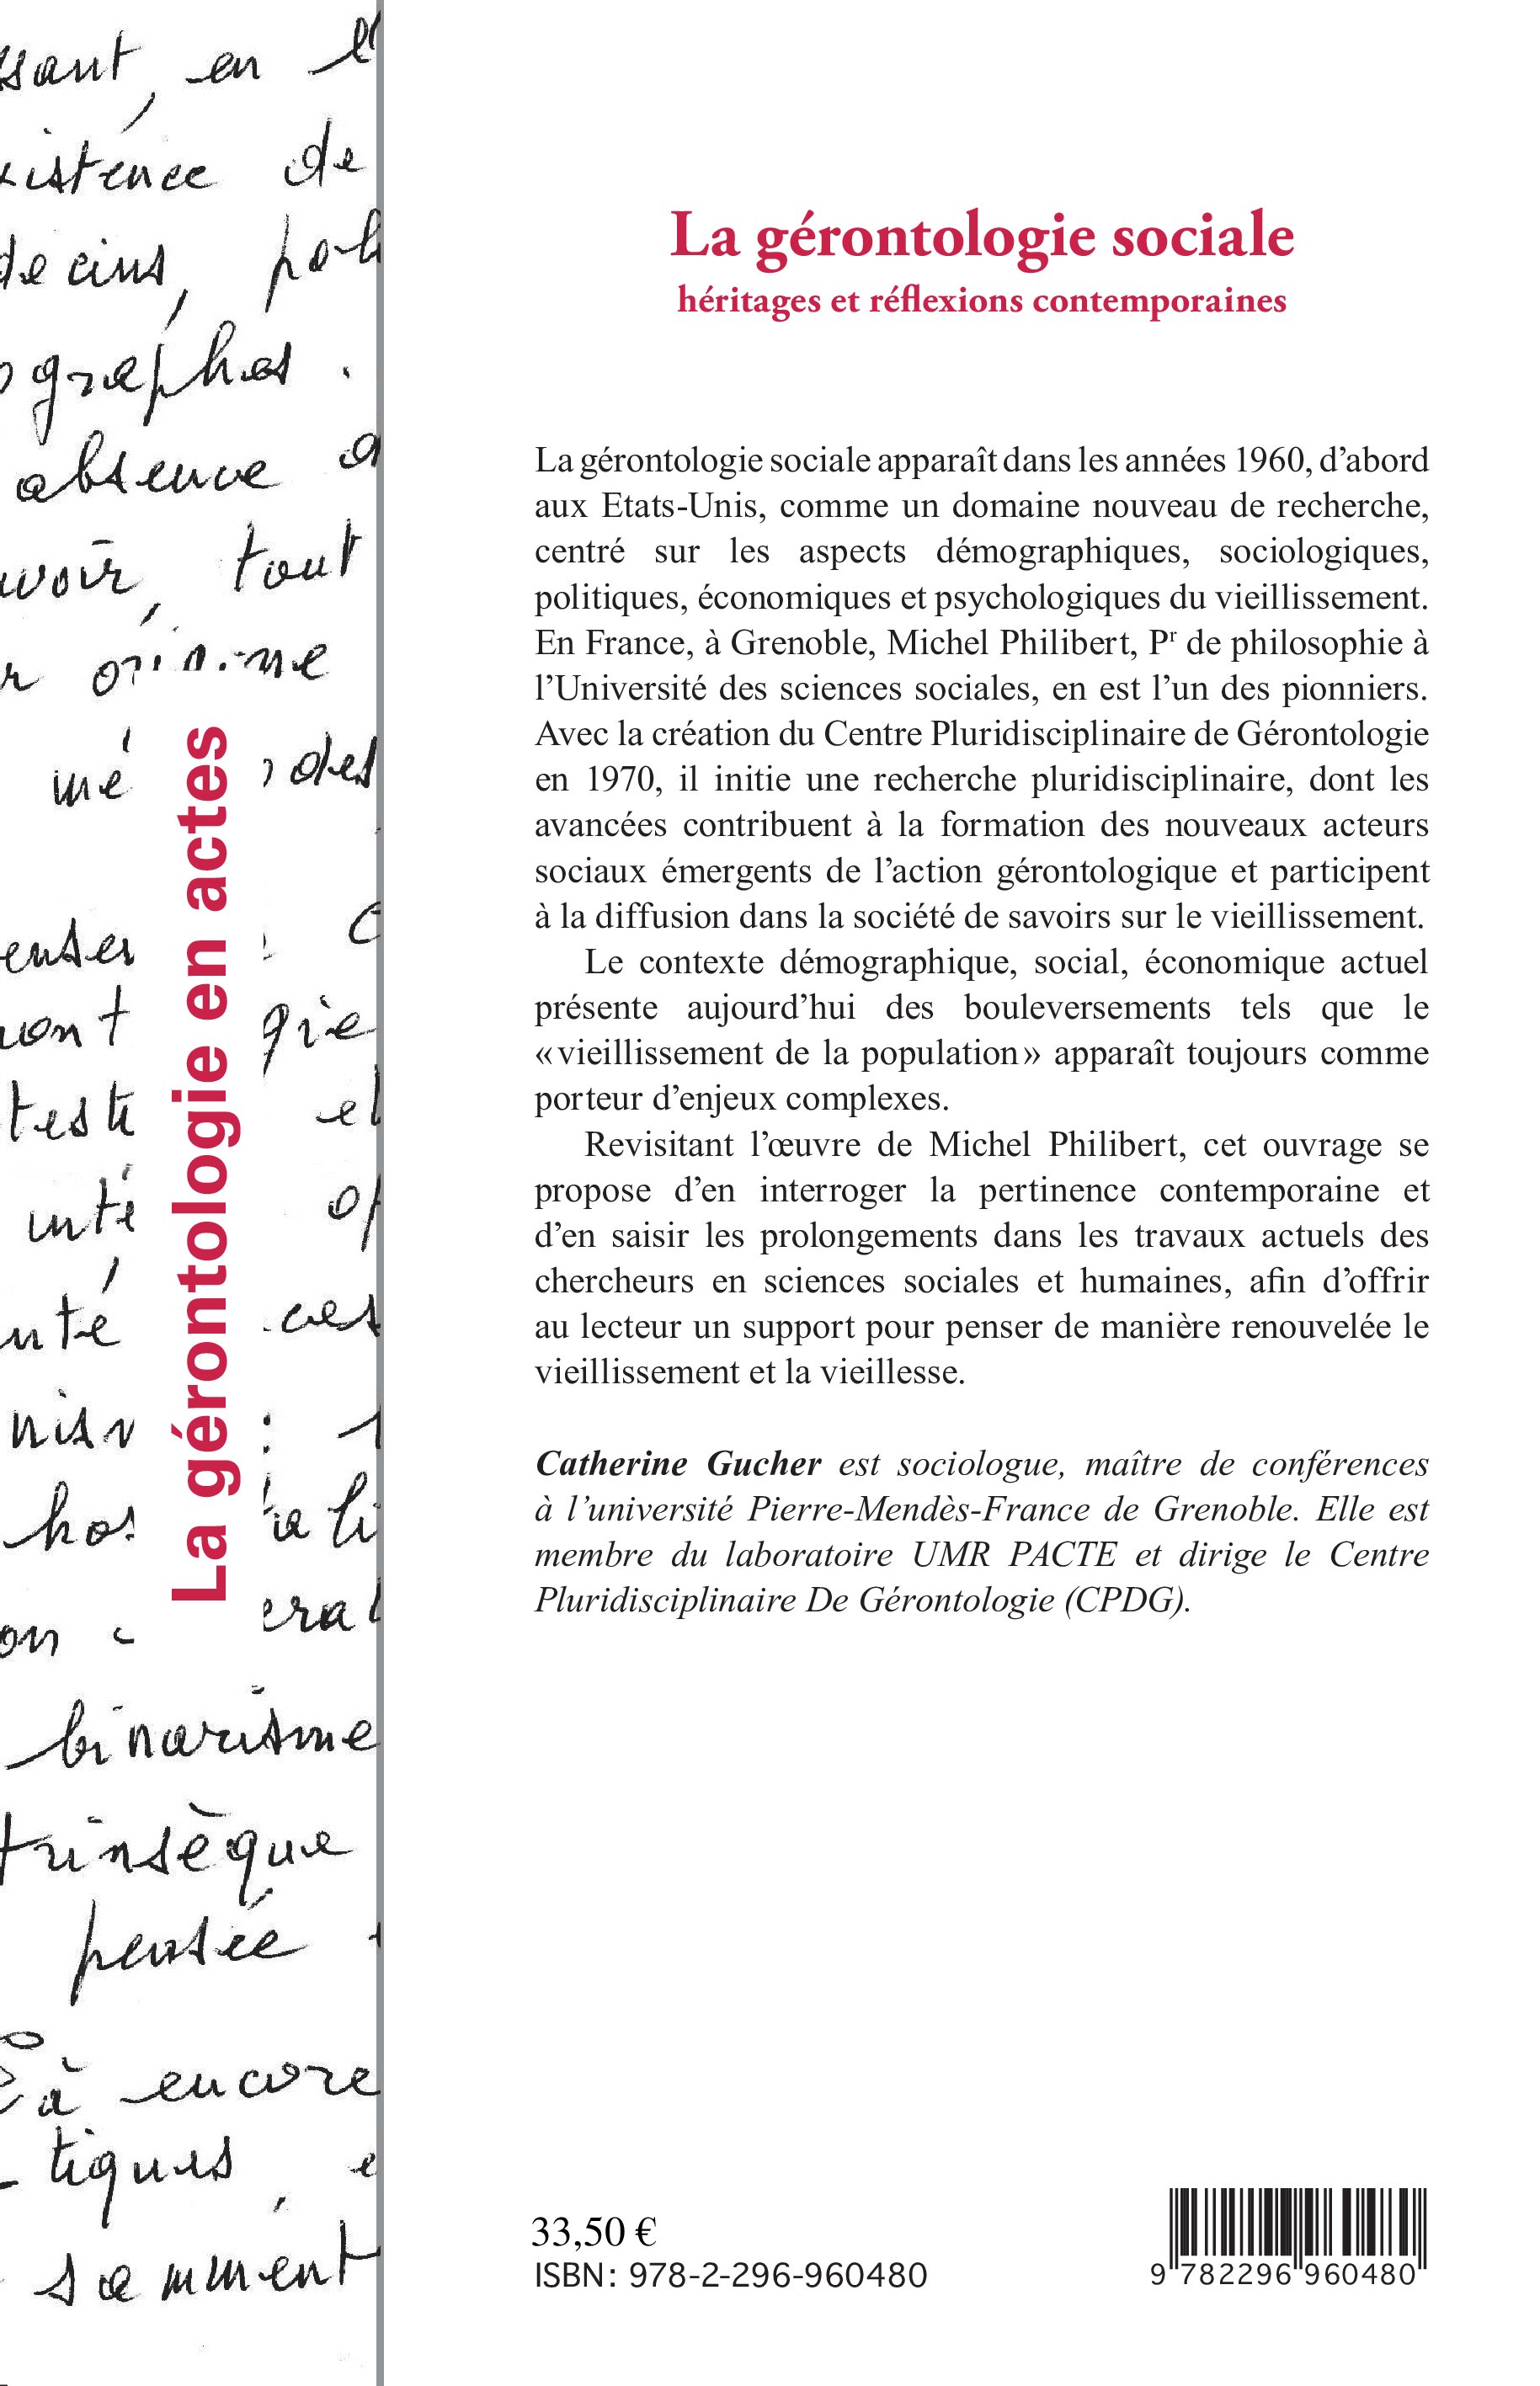 sant, en
existence de
decins,
graphes.
absence
avoir, tout
mé
test
inté
binarisme
trinsèque
pensée
à encore
tiques
samment
La gérontologie en actes
La gérontologie sociale
héritages et réflexions contemporaines
La gérontologie sociale apparaît dans les années 1960, d’abord
aux Etats-Unis, comme un domaine nouveau de recherche,
centré sur les aspects démographiques, sociologiques,
politiques, économiques et psychologiques du vieillissement.
En France, à Grenoble, Michel Philibert, Pʳ de philosophie à
l’Université des sciences sociales, en est l’un des pionniers.
Avec la création du Centre Pluridisciplinaire de Gérontologie
en 1970, il initie une recherche pluridisciplinaire, dont les
avancées contribuent à la formation des nouveaux acteurs
sociaux émergents de l’action gérontologique et participent
à la diffusion dans la société de savoirs sur le vieillissement.
Le contexte démographique, social, économique actuel
présente aujourd’hui des bouleversements tels que le
«vieillissement de la population» apparaît toujours comme
porteur d’enjeux complexes.
Revisitant l’œuvre de Michel Philibert, cet ouvrage se
propose d’en interroger la pertinence contemporaine et
d’en saisir les prolongements dans les travaux actuels des
chercheurs en sciences sociales et humaines, afin d’offrir
au lecteur un support pour penser de manière renouvelée le
vieillissement et la vieillesse.
Catherine Gucher est sociologue, maître de conférences
à l’université Pierre-Mendès-France de Grenoble. Elle est
membre du laboratoire UMR PACTE et dirige le Centre
Pluridisciplinaire De Gérontologie (CPDG).
33,50 €
ISBN : 978-2-296-960480
9 782296 960480